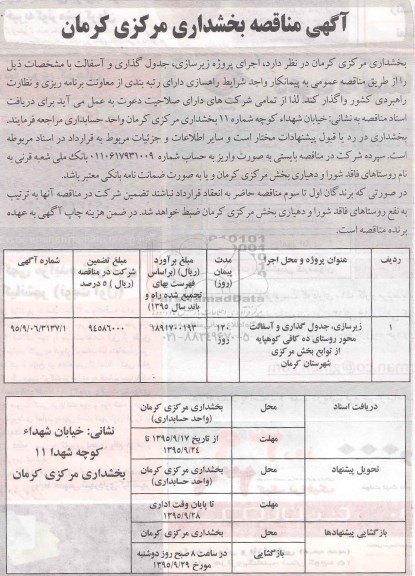 آگهی مناقصه بخشداری مرکزی کرمان
بخشداری مرکزی کرمان در نظر دارد، اجرای پروژه زیرسازی، جدول گذاری و آسفالت با مشخصات ذیل
را از طریق مناقصه عمومی به پیمانکار واجد شرایط راهسازی دارای رتبه بندی از معاونت برنامه ریزی و نظارت
راهبردی کشور واگذار کند. لذا از تمامی شرکت های دارای صلاحیت دعوت به عمل می آید برای دریافت
اسناد مناقصه به نشانی: خیابان شهداء کوچه شماره ۱۱ بخشداری مرکزی کرمان واحد حسابداری مراجعه فرمایند.
بخشداری در رد یا قبول پیشنهادات مختار است و سایر اطلاعات و جزئیات مربوط به قرارداد در اسناد مربوطه
است. سپرده شرکت در مناقصه بایستی به صورت واریز به حساب شماره ۰۱۱۰۶۱۷۹۳۱۰۰۹ بانک ملی شعبه قرنی به
نام روستاهای فاقد شورا و دهیاری بخش مرکزی کرمان و یا به صورت ضمانت نامه بانکی معتبر باشد.
در صورتی که برندگان اول تا سوم مناقصه حاضر به انعقاد قرارداد نباشند تضمین شرکت در مناقصه آنها به ترتیب
به نفع روستاهای فاقد شورا و دهیاری بخش مرکزی کرمان ضبط خواهد شد. در ضمن هزینه چاپ آگهی به عهده
برنده مناقصه است.
ردیف عنوان پروژه و محل اجرا مدت پیمان (روز) مبلغ برآورد (ریال) (براساس فهرست بهای تجمیع شده راه و باند سال ۱۳۹۵) مبلغ تضمین شرکت در مناقصه (ریال) ۵ درصد شماره آگهی
۱ زیرسازی، جدول گذاری و آسفالت محور روستای ده کافی کوهپایه از توابع بخش مرکزی شهرستان کرمان ۱۲۰ روز ۱۸۹۱۷۰۰۱۹۳ ۹۴۵۸۶۰۰۰ ۹۵/۹/۰۶/۳۱۳۷/۱
دریافت اسناد محل بخشداری مرکزی کرمان (واحد حسابداری)
مهلت از تاریخ ۱۳۹۵/۹/۱۷ تا ۱۳۹۵/۹/۲۴
تحویل پیشنهاد محل بخشداری مرکزی کرمان (واحد حسابداری)
مهلت تا پایان وقت اداری ۱۳۹۵/۹/۲۸
بازگشایی پیشنهادها محل بخشداری مرکزی کرمان
بازگشایی در ساعت ۸ صبح روز دوشنبه مورخ ۱۳۹۵/۹/۲۹
نشانی: خیابان شهداء
کوچه شهدا ۱۱
بخشداری مرکزی کرمان